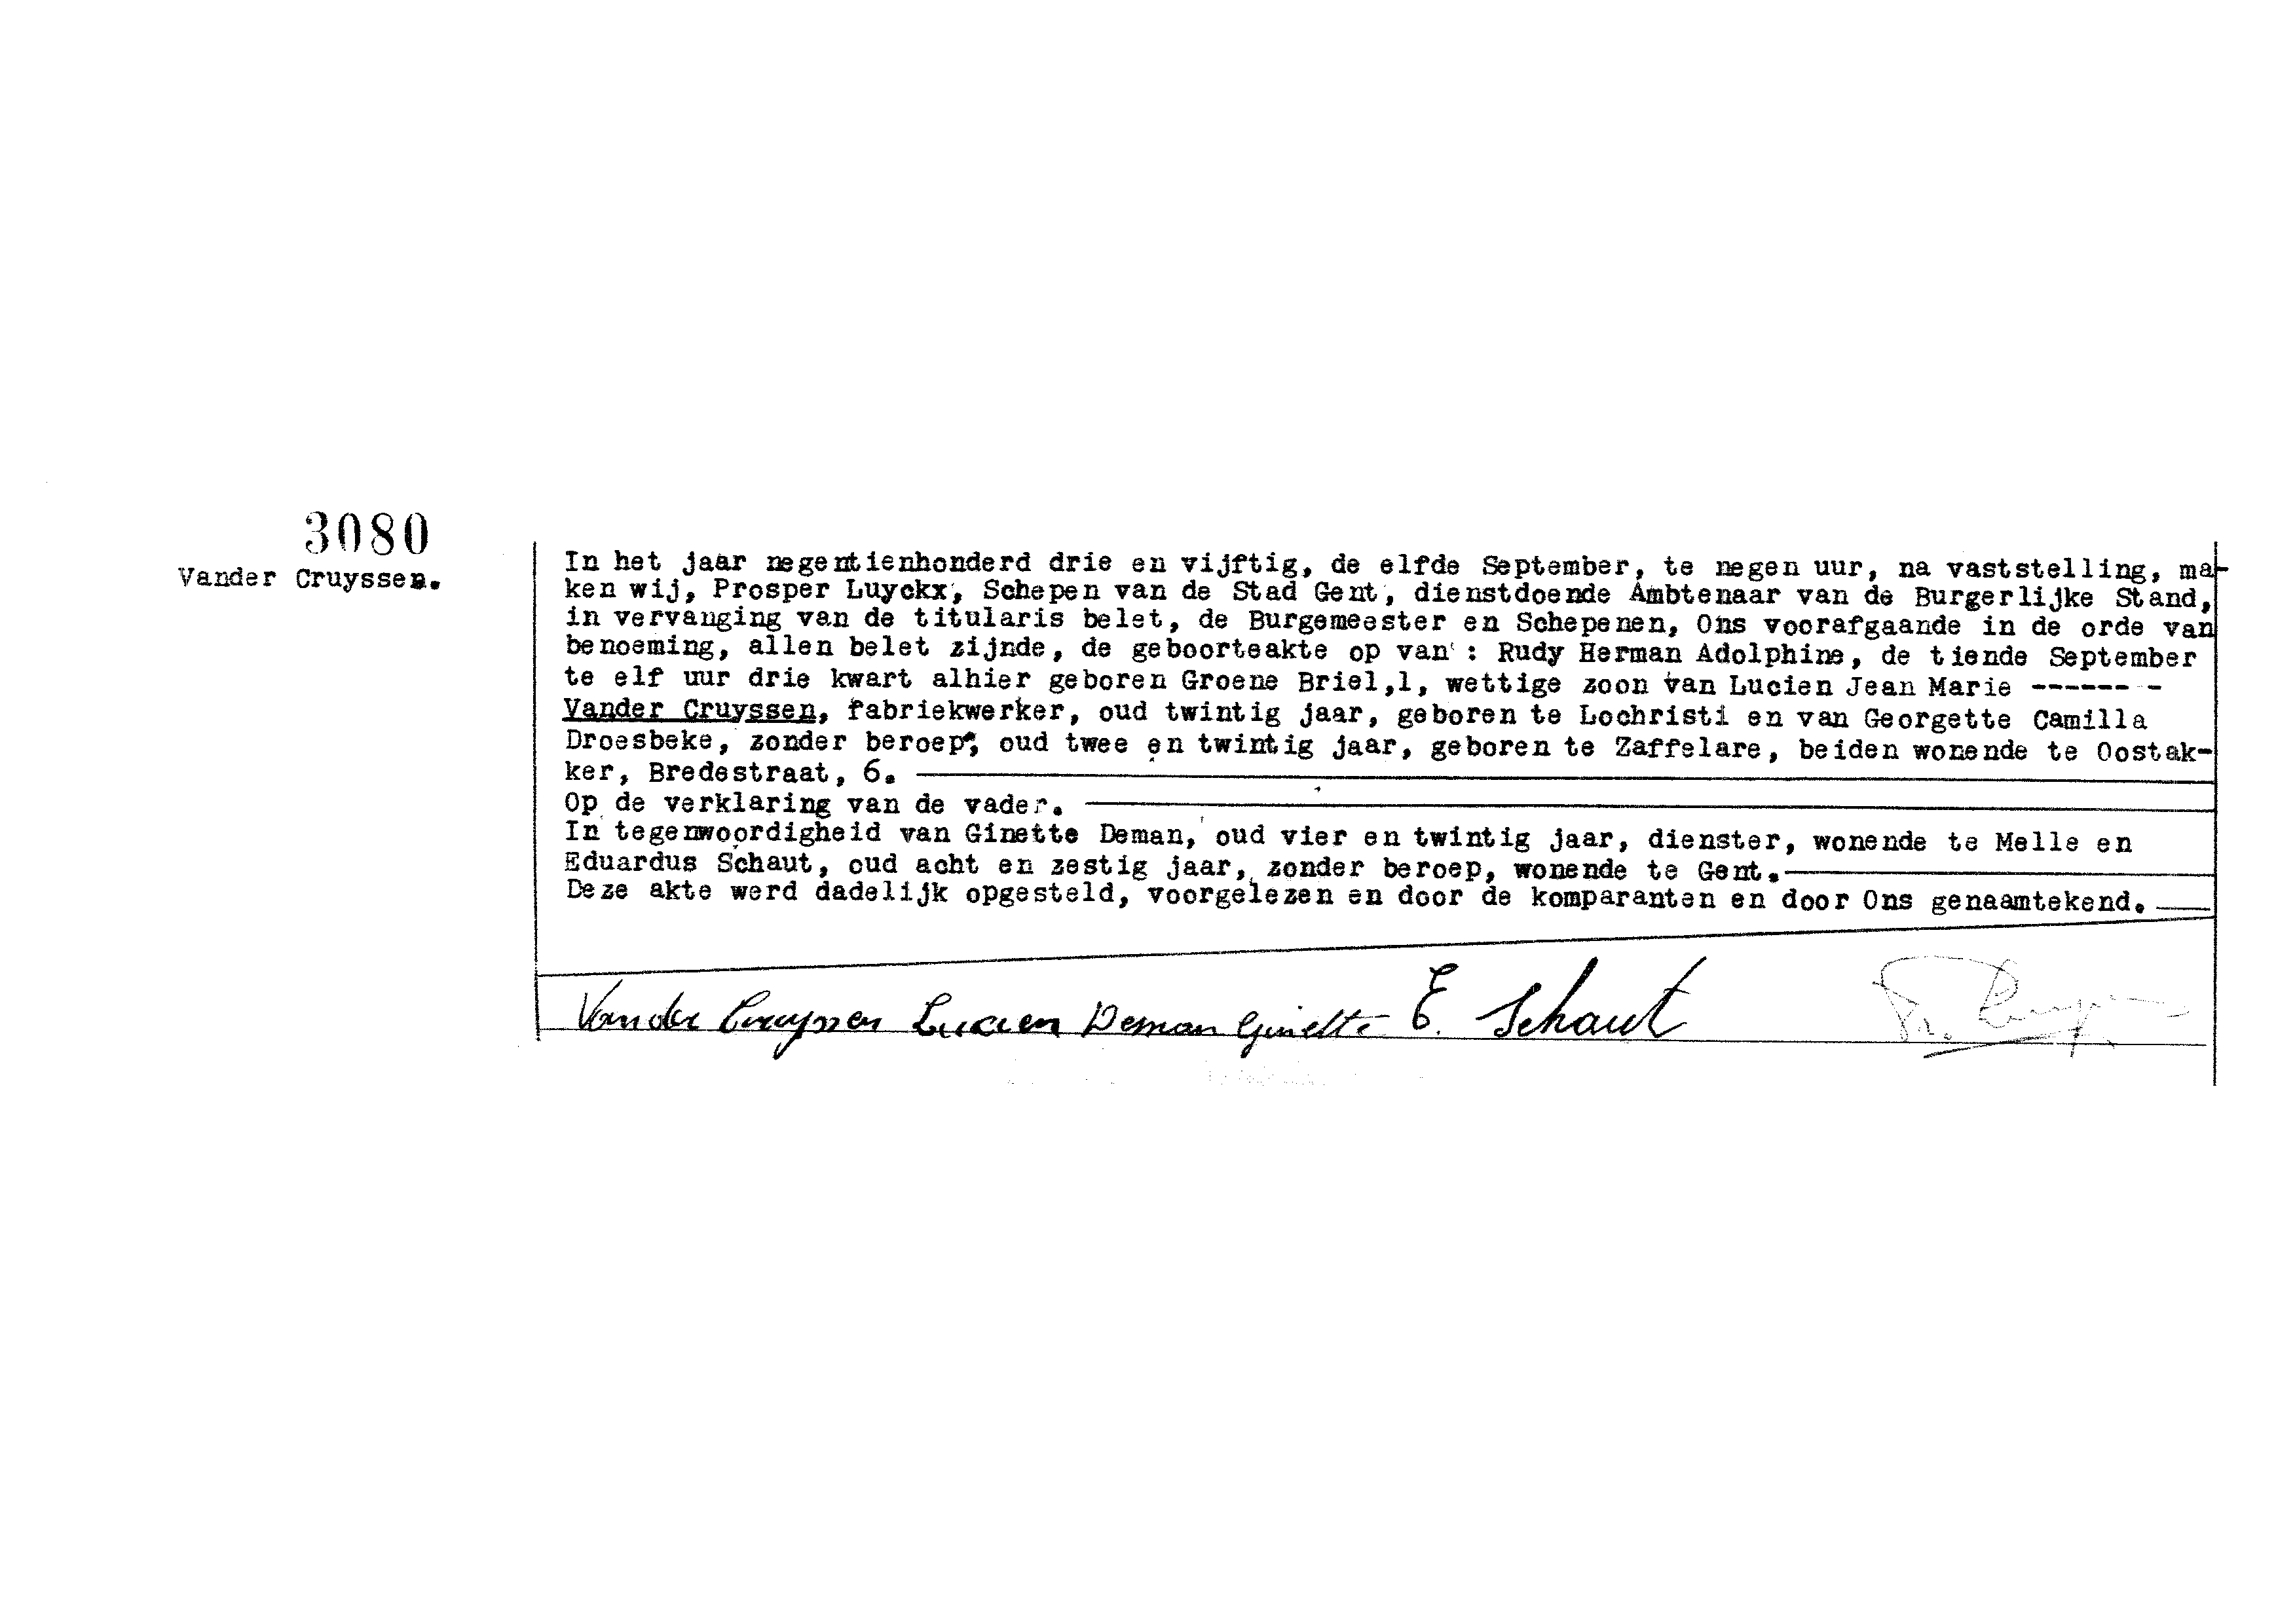 3080
Vander Cruyssen.
In het jaar negentienhonderd drie en vijftig, de elfde September, te negen uur, na vaststelling, ma-
ken wij, Prosper Luyckx, Schepen van de Stad Gent, dienstdoende Ambtenaar van de Burgerlijke Stand,
in vervanging van de titularis belet, de Burgemeester en Schepenen, Ons voorafgaande in de orde van
benoeming, allen belet zijnde, de geboorteakte op van : Rudy Herman Adolphine, de tiende September
te elf uur drie kwart alhier geboren Groene Briel,1, wettige zoon van Lucien Jean Marie --------
Vander Cruyssen, fabriekwerker, oud twintig jaar, geboren te Lochristi en van Georgette Camilla
Droesbeke, zonder beroep, oud twee en twintig jaar, geboren te Zaffelare, beiden wonende te Oostak-
ker, Bredestraat, 6.
Op de verklaring van de vader.
In tegenwoordigheid van Ginette Deman, oud vier en twintig jaar, dienster, wonende te Melle en
Eduardus Schaut, oud acht en zestig jaar, zonder beroep, wonende te Gent.
Deze akte werd dadelijk opgesteld, voorgelezen en door de komparanten en door Ons genaamtekend.
Vander Cruyssen Lucien Deman Ginette E. Schaut